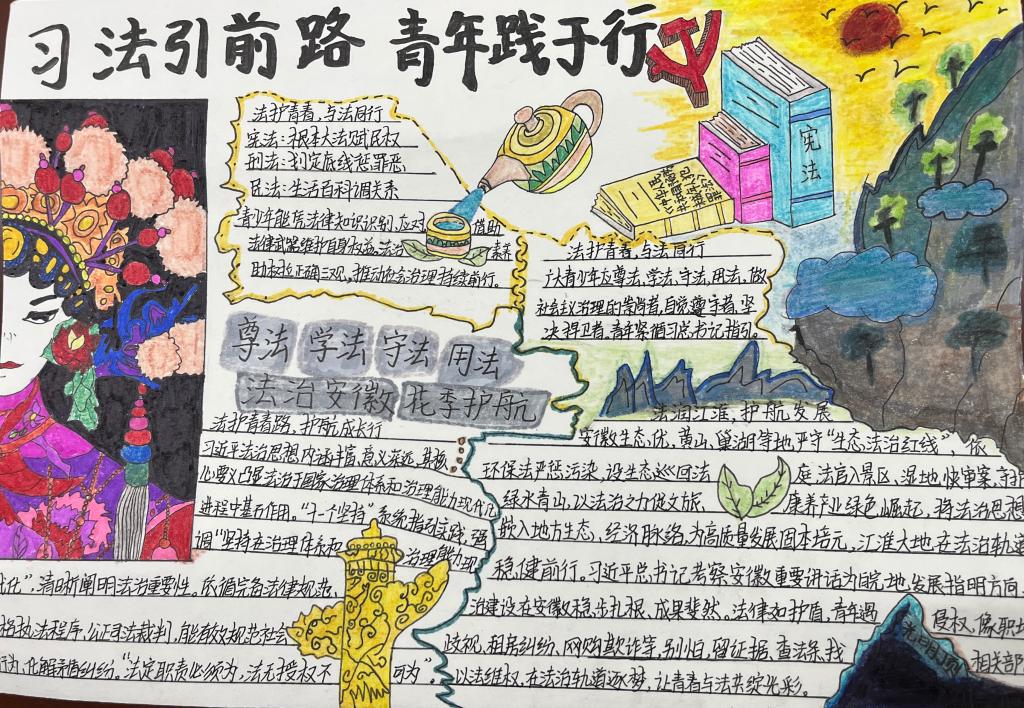 习法引前路 青年践于行
法护青春,与法同行
宪法:根本大法赋民权
刑法:划定底线惩罪恶
民法:生活百科调关系
青少年能凭法律知识识别,应对
借助
法律武器维护自身权益,法治
素养
助树正确三观,推动社会治理持续前行。
宪法
法护青春,与法同行
广大青少年应尊法,学法,守法,用法,做
社会主义治理的崇尚者,自觉遵守者,坚
决捍卫者。青年紧循习总书记指引。
尊法 学法 守法 用法
法治安徽 花季护航
法护青春路,护航成长行
习近平法治思想内涵丰富,意义深远,其核
心要义凸显法治于国家治理体系和治理能力现代化
进程中基石作用。“十一个坚持”系统指引实践,强
调“坚持在治理体系和
治理能力现
代化”,清晰阐明法治重要性。依循完备法律规范,
格执法程序,公正司法裁判,能有效规范社会
行为,化解矛盾纠纷。“法定职责必须为,法无授权不
可为”。
法润江淮,护航发展
安徽生态优,黄山,巢湖等地严守“生态法治红线”,依
环保法严惩污染,设生态巡回法
庭,法官入景区,湿地,快审案,守护
绿水青山,以法治之力促文旅,
康养产业绿色崛起,将法治思想
嵌入地方生态,经济脉络,为高质量发展固本培元,江淮大地在法治轨道
稳健前行。习近平总书记考察安徽重要讲话为皖地发展指明方向
治建设在安徽稳步扎根,成果斐然。法律如护盾,青年遇
侵权,像职场
歧视,租房纠纷,网购欺诈等,别怕,留证据,查法条,找
相关部
以法维权,在法治轨道逐梦,让青春与法共绽光彩。
光明顶